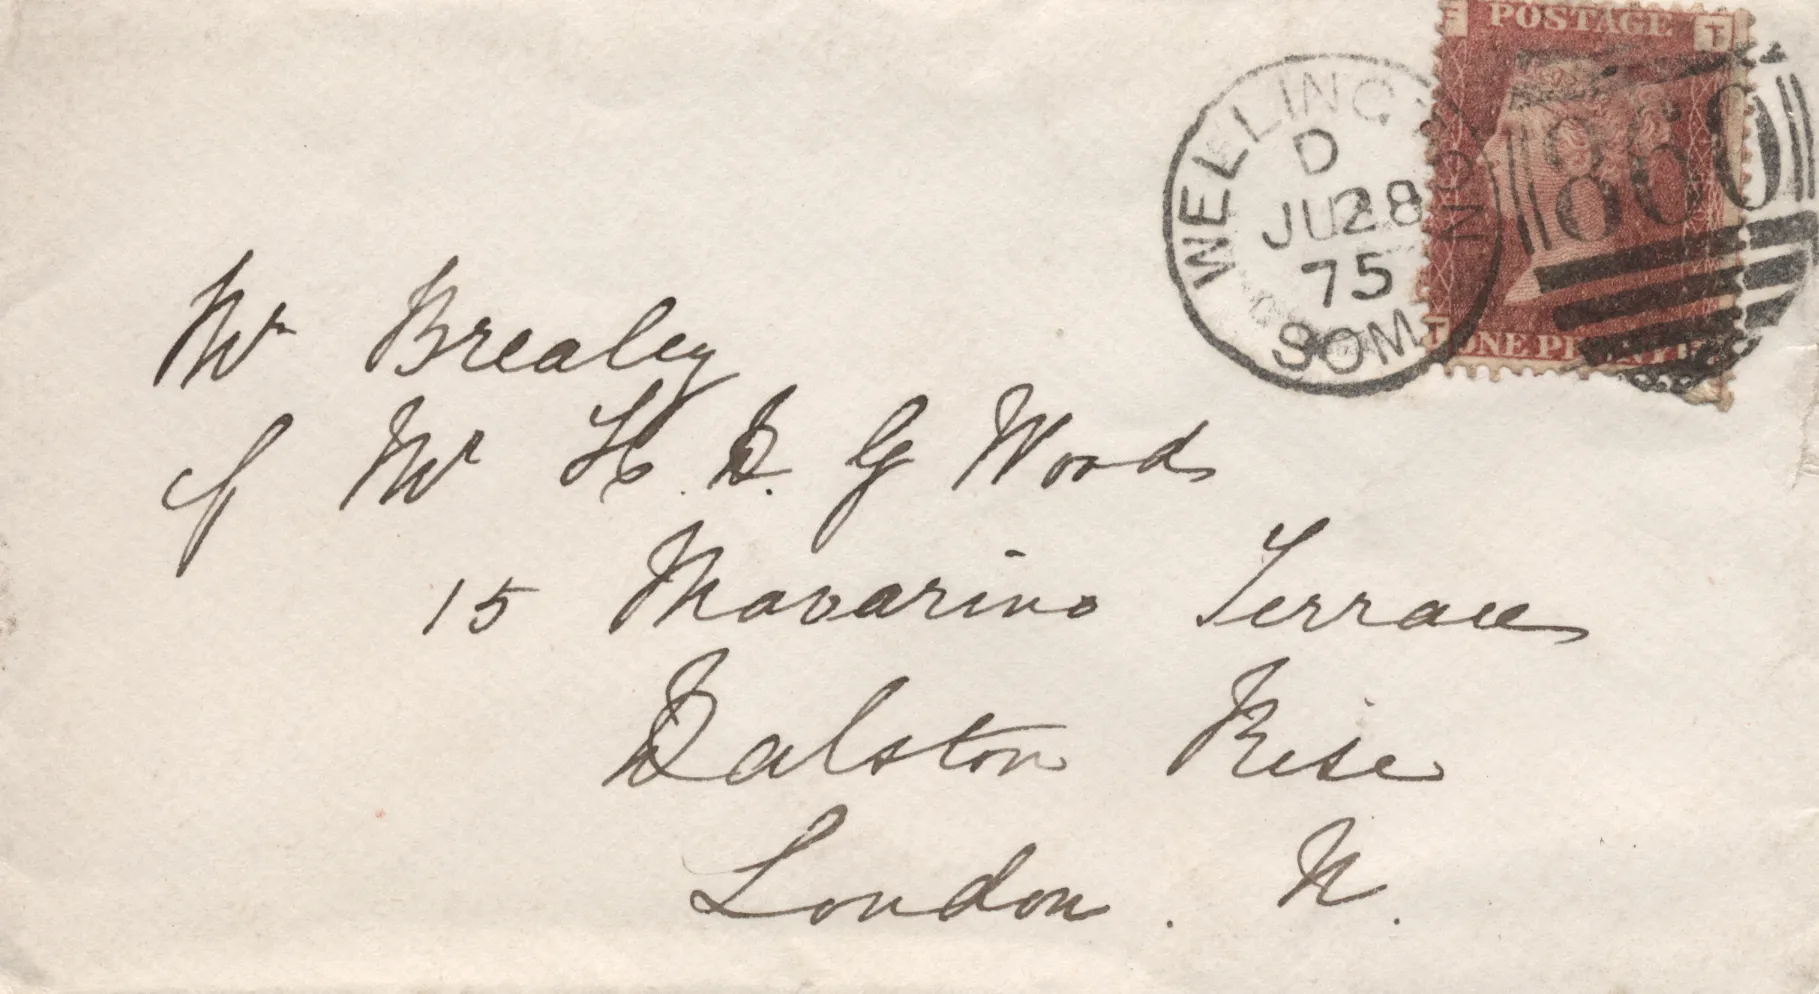 F POSTAGE T
WELLINGTON
D
JU 28
75
SOM
860
T ONE PENNY F
Mr Brealey
c/ Mr H. D. G Woods
15 Navarino Terrace
Dalston Rise
London. N.